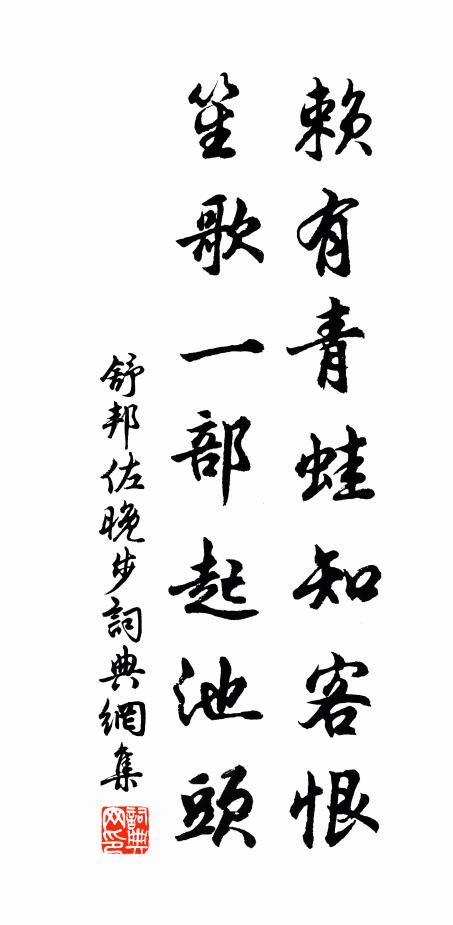 賴有青蛙知客恨
笙歌一部起池頭
舒邦佐晚步詞典網集
詞典网印